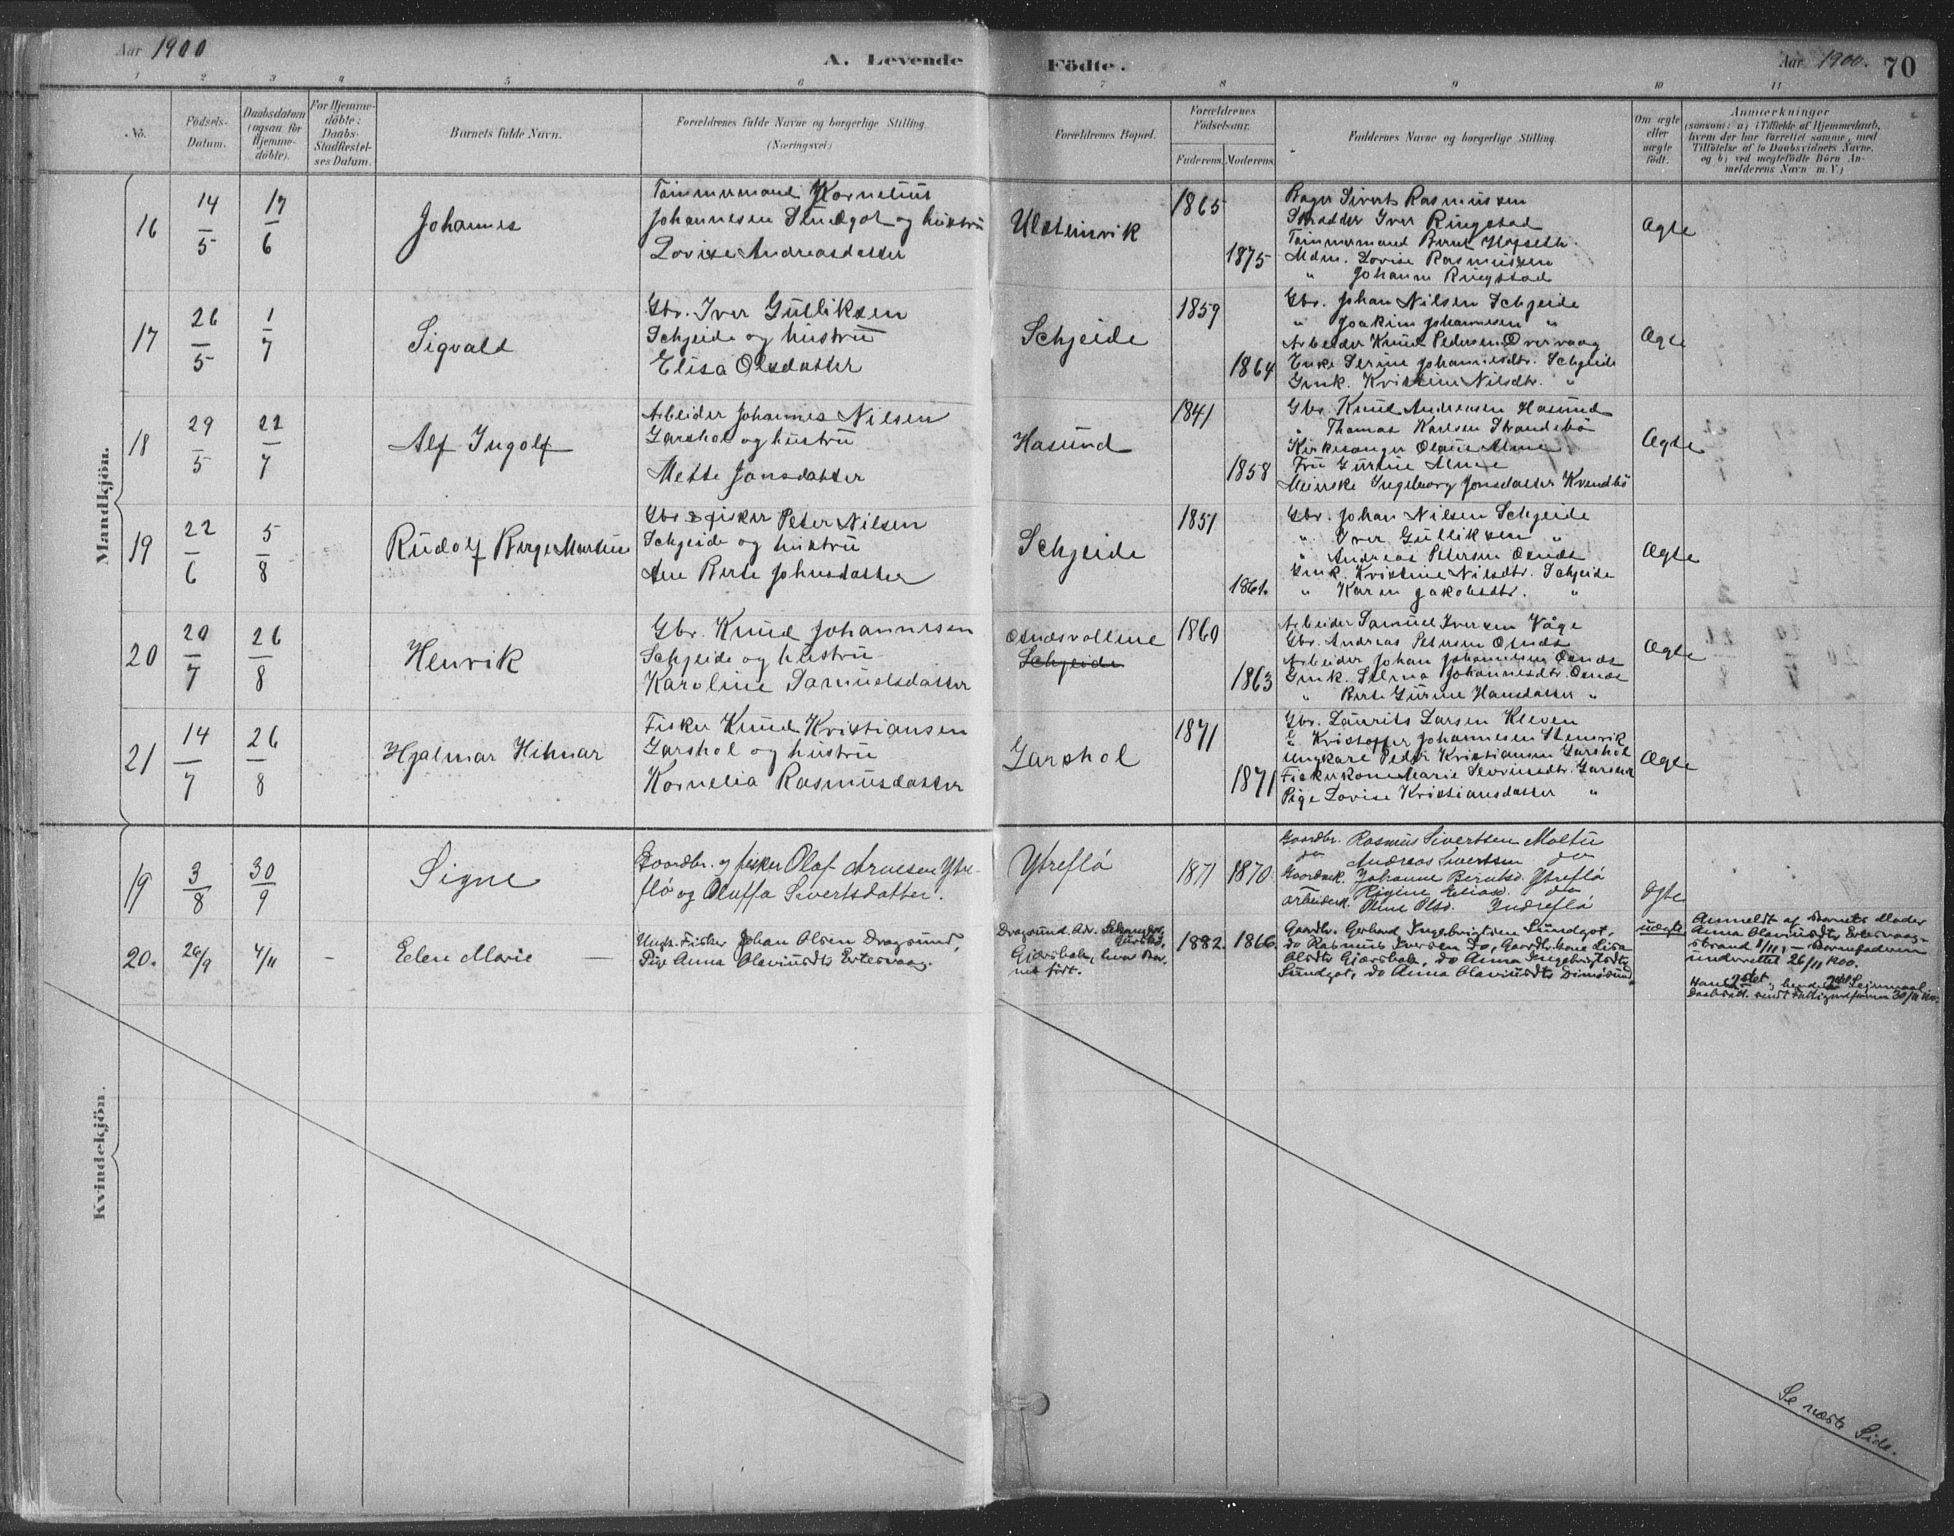 Aar 1900
A. Levende Födte.
Aar 1900. 70
1 2 3 4 5 6 7 8 9 10 11
No.
Födsels-Datum.
Daabsdatum (ogsaa för Hjemme-döbte).
For Hjemme-döbte: Daabs-Stadfæstel-ses Datum.
Barnets fulde Navn.
Forældrenes fulde Navne og borgerlige Stilling. (Næringsvei)
Forældrenes Bopæl.
Forældrenes Födselsaar.
Faderens. Moderens.
Faddernes Navne og borgerlige Stilling.
Om ægte eller uægte födt.
Anmærkninger
(saasom: a) i Tilfælde af Hjemmedaab,
hvem der har forrettet samme, med
Tilföielse af to Daabsvidners Navne,
og b) ved uægtefödte Börn An-
melderens Navn m. V.)
Mandkjön.
16
14/5
17/6
Johannes
Tømmermand Kornelius
Johannesen Sundgot og hustru
Lovise Andreasdatter
Ulsteinvik
1865
1875
Bager Sivert Rasmussen
Skrædder Iver Ringstad
Tømmermand Bernt Hofseth
Mdm. Lovise Rasmussen
" Johanne Ringstad
Ægte
17
26/5
1/7
Sigvald
Gbr. Iver Gulliksen
Schjeide og hustru
Elisa Olsdatter
Schjeide
1859
1864
Gbr. Johan Nilsen Schjeide
" Joakim Johannesen "
Arbeider Knud Pedersen Overvaag
Enke Serine Johannesdtr. Schjeide
Gmk. Kristine Nilsdtr. "
Ægte
18
29/5
22/7
Alf Ingolf
Arbeider Johannes Nilsen
Garshol og hustru
Mette Jonsdatter
Hasund
1841
1858
Gbr. Knud Andreasen Hasund
" Thomas Karlsen Strandebø
Kirkesanger Olaus Alme
Fru Gurine Alme
Meierske Ingeborg Jonsdatter Kvendbø
Ægte
19
22/6
5/8
Rudolf Birger Martin
Gbr & fisker Peter Nilsen
Schjeide og hustru
Ane Berte Johnsdatter
Schjeide
1851
1861.
Gbr. Johan Nilsen Schjeide
" Iver Gulliksen "
" Andreas Petersen Osnæs
Gmk. Kristine Nilsdtr. Schjeide
" Karen Jakobsdtr. "
Ægte
20
20/7
26/8
Henrik
Gbr. Knud Johannesen
Schjeide og hustru
Karoline Samuelsdatter
Osnæsvollene
Schjeide
1860
1863
Arbeider Samuel Iversen Våge
Gbr. Andreas Petersen Osnæs
Arbeider Johan Johannesen Osnæs
Gmk. Selma Johannesdtr. Osnæs
" Berte Gurine Hansdatter "
Ægte
21
14/7
26/8
Hjalmar Hilmar
Fisker Knud Kristiansen
Garshol og hustru
Kornelia Rasmusdatter
Garshol
1871
1871
Gbr. Laurits Larsen Kleven
" Kristoffer Johannesen Stensvik
Ungkarl Peder Kristiansen Garshol
Fiskerkone Marie Severinsdtr. Garshol
Pige Lovise Kristiansdatter "
Ægte
Kvindekjön.
19
3/8
30/9
Signe
Gaardbr. og fisker Olaf Arnesen Ytre-
flø og Oluffa Sivertsdatter.
Ytreflø
1871 1870
Gaardbr. Rasmus Sivertsen Moltu
do Andreas Sivertsen do
Gaardmk. Johanne Berntsd. Ytreflø
Regine Eliasd. do
Arbeiderk. Oline Olsd. Indreflø
Ægte
20.
26/9
4/11
-
Elen Marie -
Ungk. Fisker Johan Olsen Dragsund,
Pige Anna Olaviusdtr Ertesvaag.
Dragsund. Adr.
Gjærsholm, hvor Bar-
net født.
1882. 1866.
Gaardbr. Gerhard Ingebrigtsen Sundgot,
do Rasmus Iversen do, Gaardbr.kone Lisa
Olsdtr Gjærsholm, do Anna Ingebrigtsdtr
Sundgot, do Anna Olaviusdtr Dimøsund.
uægte
Anmeldt af Barnets Moder
Anna Olaviusdtr Ertesvaag-
strand 8/11, — Barnefaderen
underrettet 26/11 1900.
Hans 2det, hendes Leiermaal.
Se næste Side.